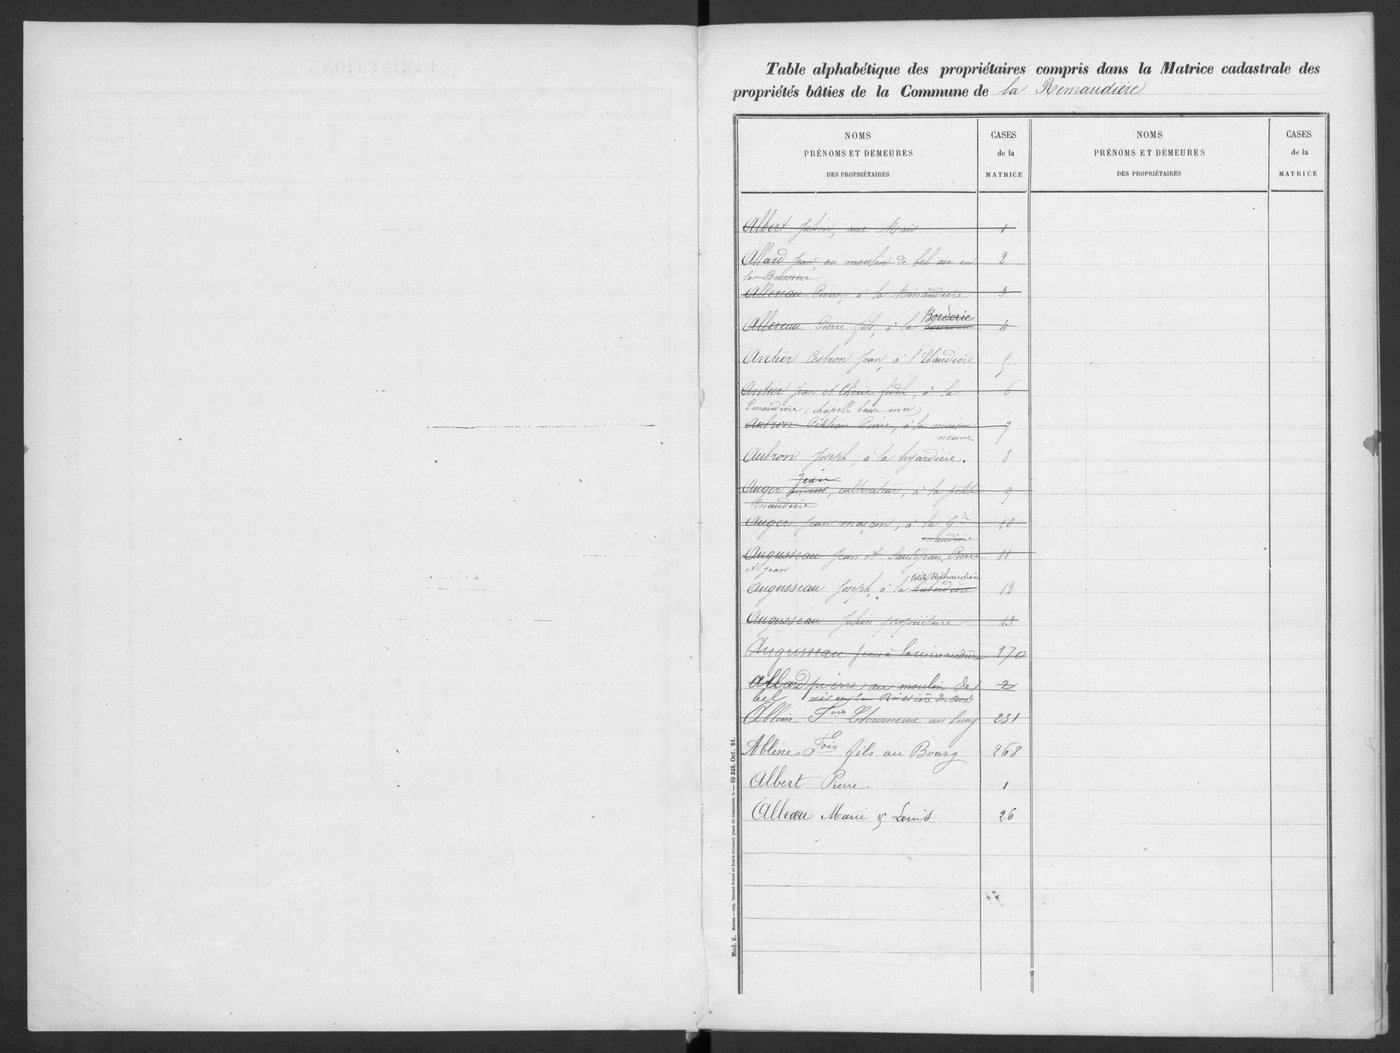 Table alphabétique des propriétaires compris dans la Matrice cadastrale des
propriétés bâties de la Commune de la Remaudière
NOMS
PRÉNOMS ET DEMEURES
DES PROPRIÉTAIRES
CASES
de la
MATRICE
NOMS
PRÉNOMS ET DEMEURES
DES PROPRIÉTAIRES
CASES
de la
MATRICE
Albert Julien, aux Mais 1
Allard Jean, au moulin de bel air en 2
la Boissière
Allereau Pierre, à la Rinaudière 3
Borderie
Allereau Pierre fils, à la 4
Antier Cesbron Jean, à l' 5
Antier Jean et fidèl, à la 6
(chapelle basse mer)
Aubron Pierre, à la maison 7
neuve
Aubron Joseph, à la hyardière. 8
Jean
Auger, cultivateur, à la petite 9
Auger Jean maçon, à la Gde 10
Augusseau Jean et Sautejeau Pierre 11
et Jean
petite Richaudière
Augusseau Joseph, à la 12
Augusseau Julien propriétaire 13
Augusseau Jean à 170
Allard pierre au moulin de 2
bel air en la Boissière du doré
Abline Fois Letourneux au bourg 231
Abline Fois fils au Bourg 268
Albert Pierre. 1
Alleau Marie & Louis 26